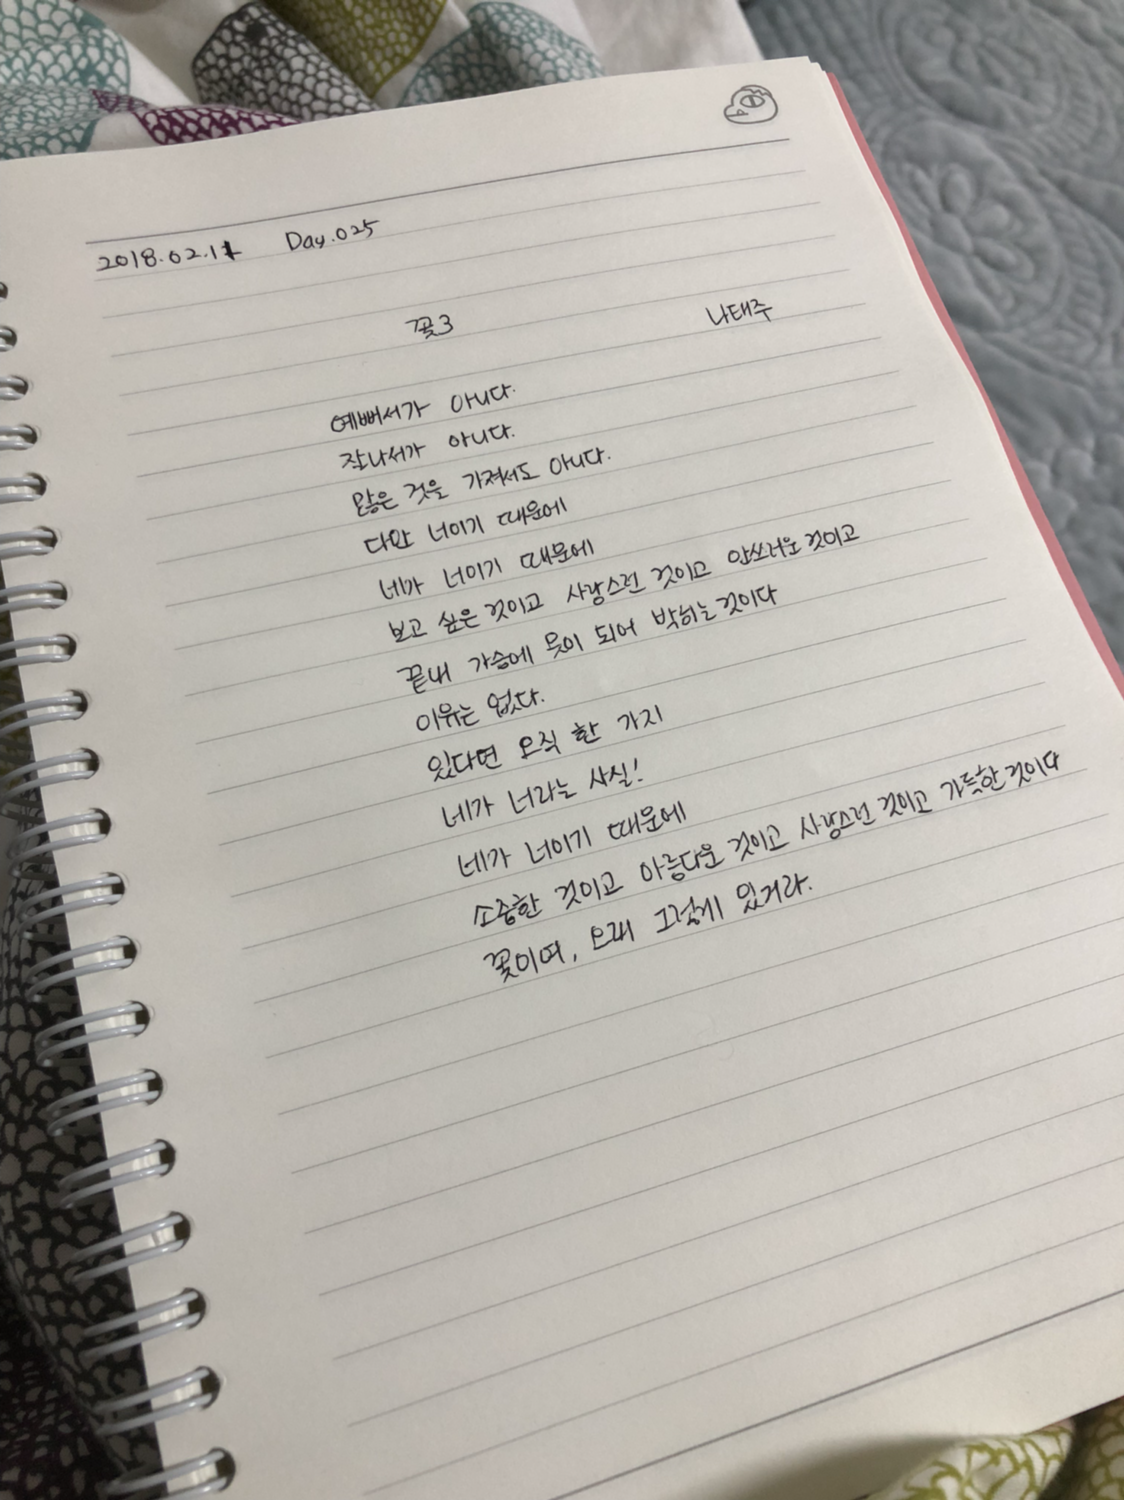 2018.02.11 Day.025
꽃3 나태주
예뻐서가 아니다.
잘나서가 아니다.
많은 것을 가져서도 아니다.
다만 너이기 때문에
네가 너이기 때문에
보고 싶은 것이고 사랑스런 것이고 안쓰러운 것이고
끝내 가슴에 못이 되어 박히는 것이다
이유는 없다.
있다면 오직 한 가지
네가 너라는 사실!
네가 너이기 때문에
소중한 것이고 아름다운 것이고 사랑스런 것이고 가득한 것이다
꽃이여, 오래 그렇게 있거라.